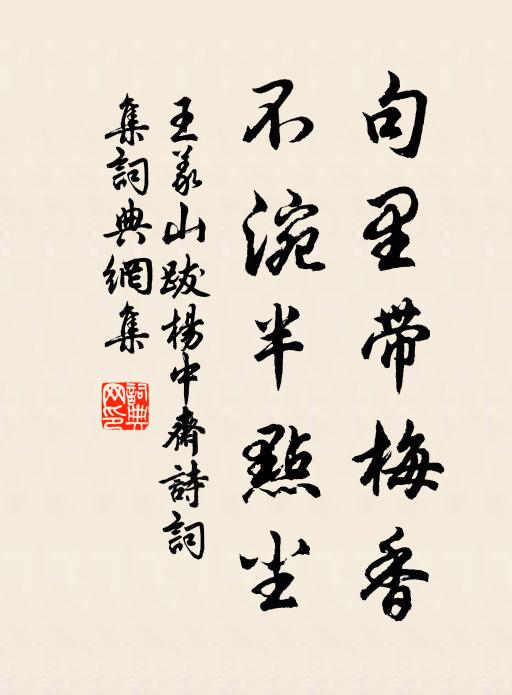 句里帶梅香
不涴半點尘
王義山跋楊中齋詩詞
集詞典網集
詞典
网印